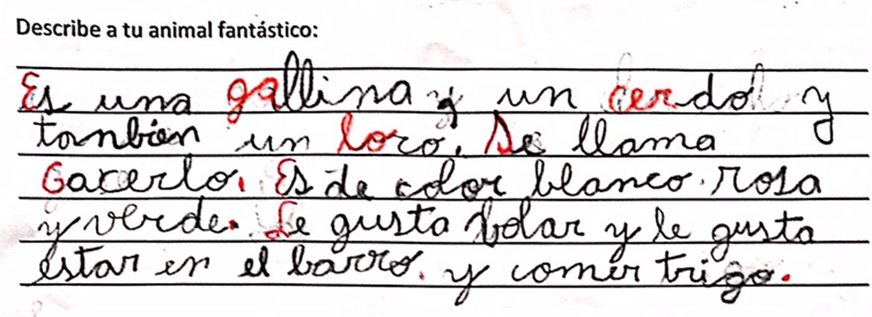 Describe a tu animal fantástico:
Es una gallina y un cerdo y
tanbien un loro. Se llama
Gacerlo. Es de color blanco. rosa
y verde. Le gusta volar y le gusta
estar en el barro. y comer trigo.